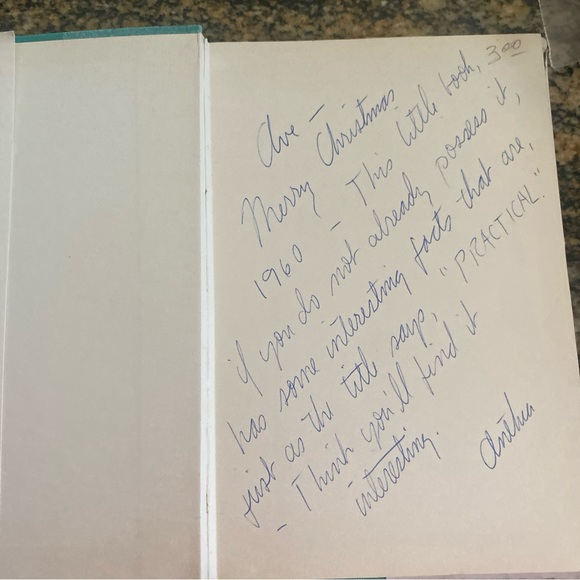 3.00
Ave –
Merry Christmas
1960 – This little book,
if you do not already possess it,
has some interesting facts that are,
just as the title says, "PRACTICAL."
– Think you'll find it
interesting.
Anthea